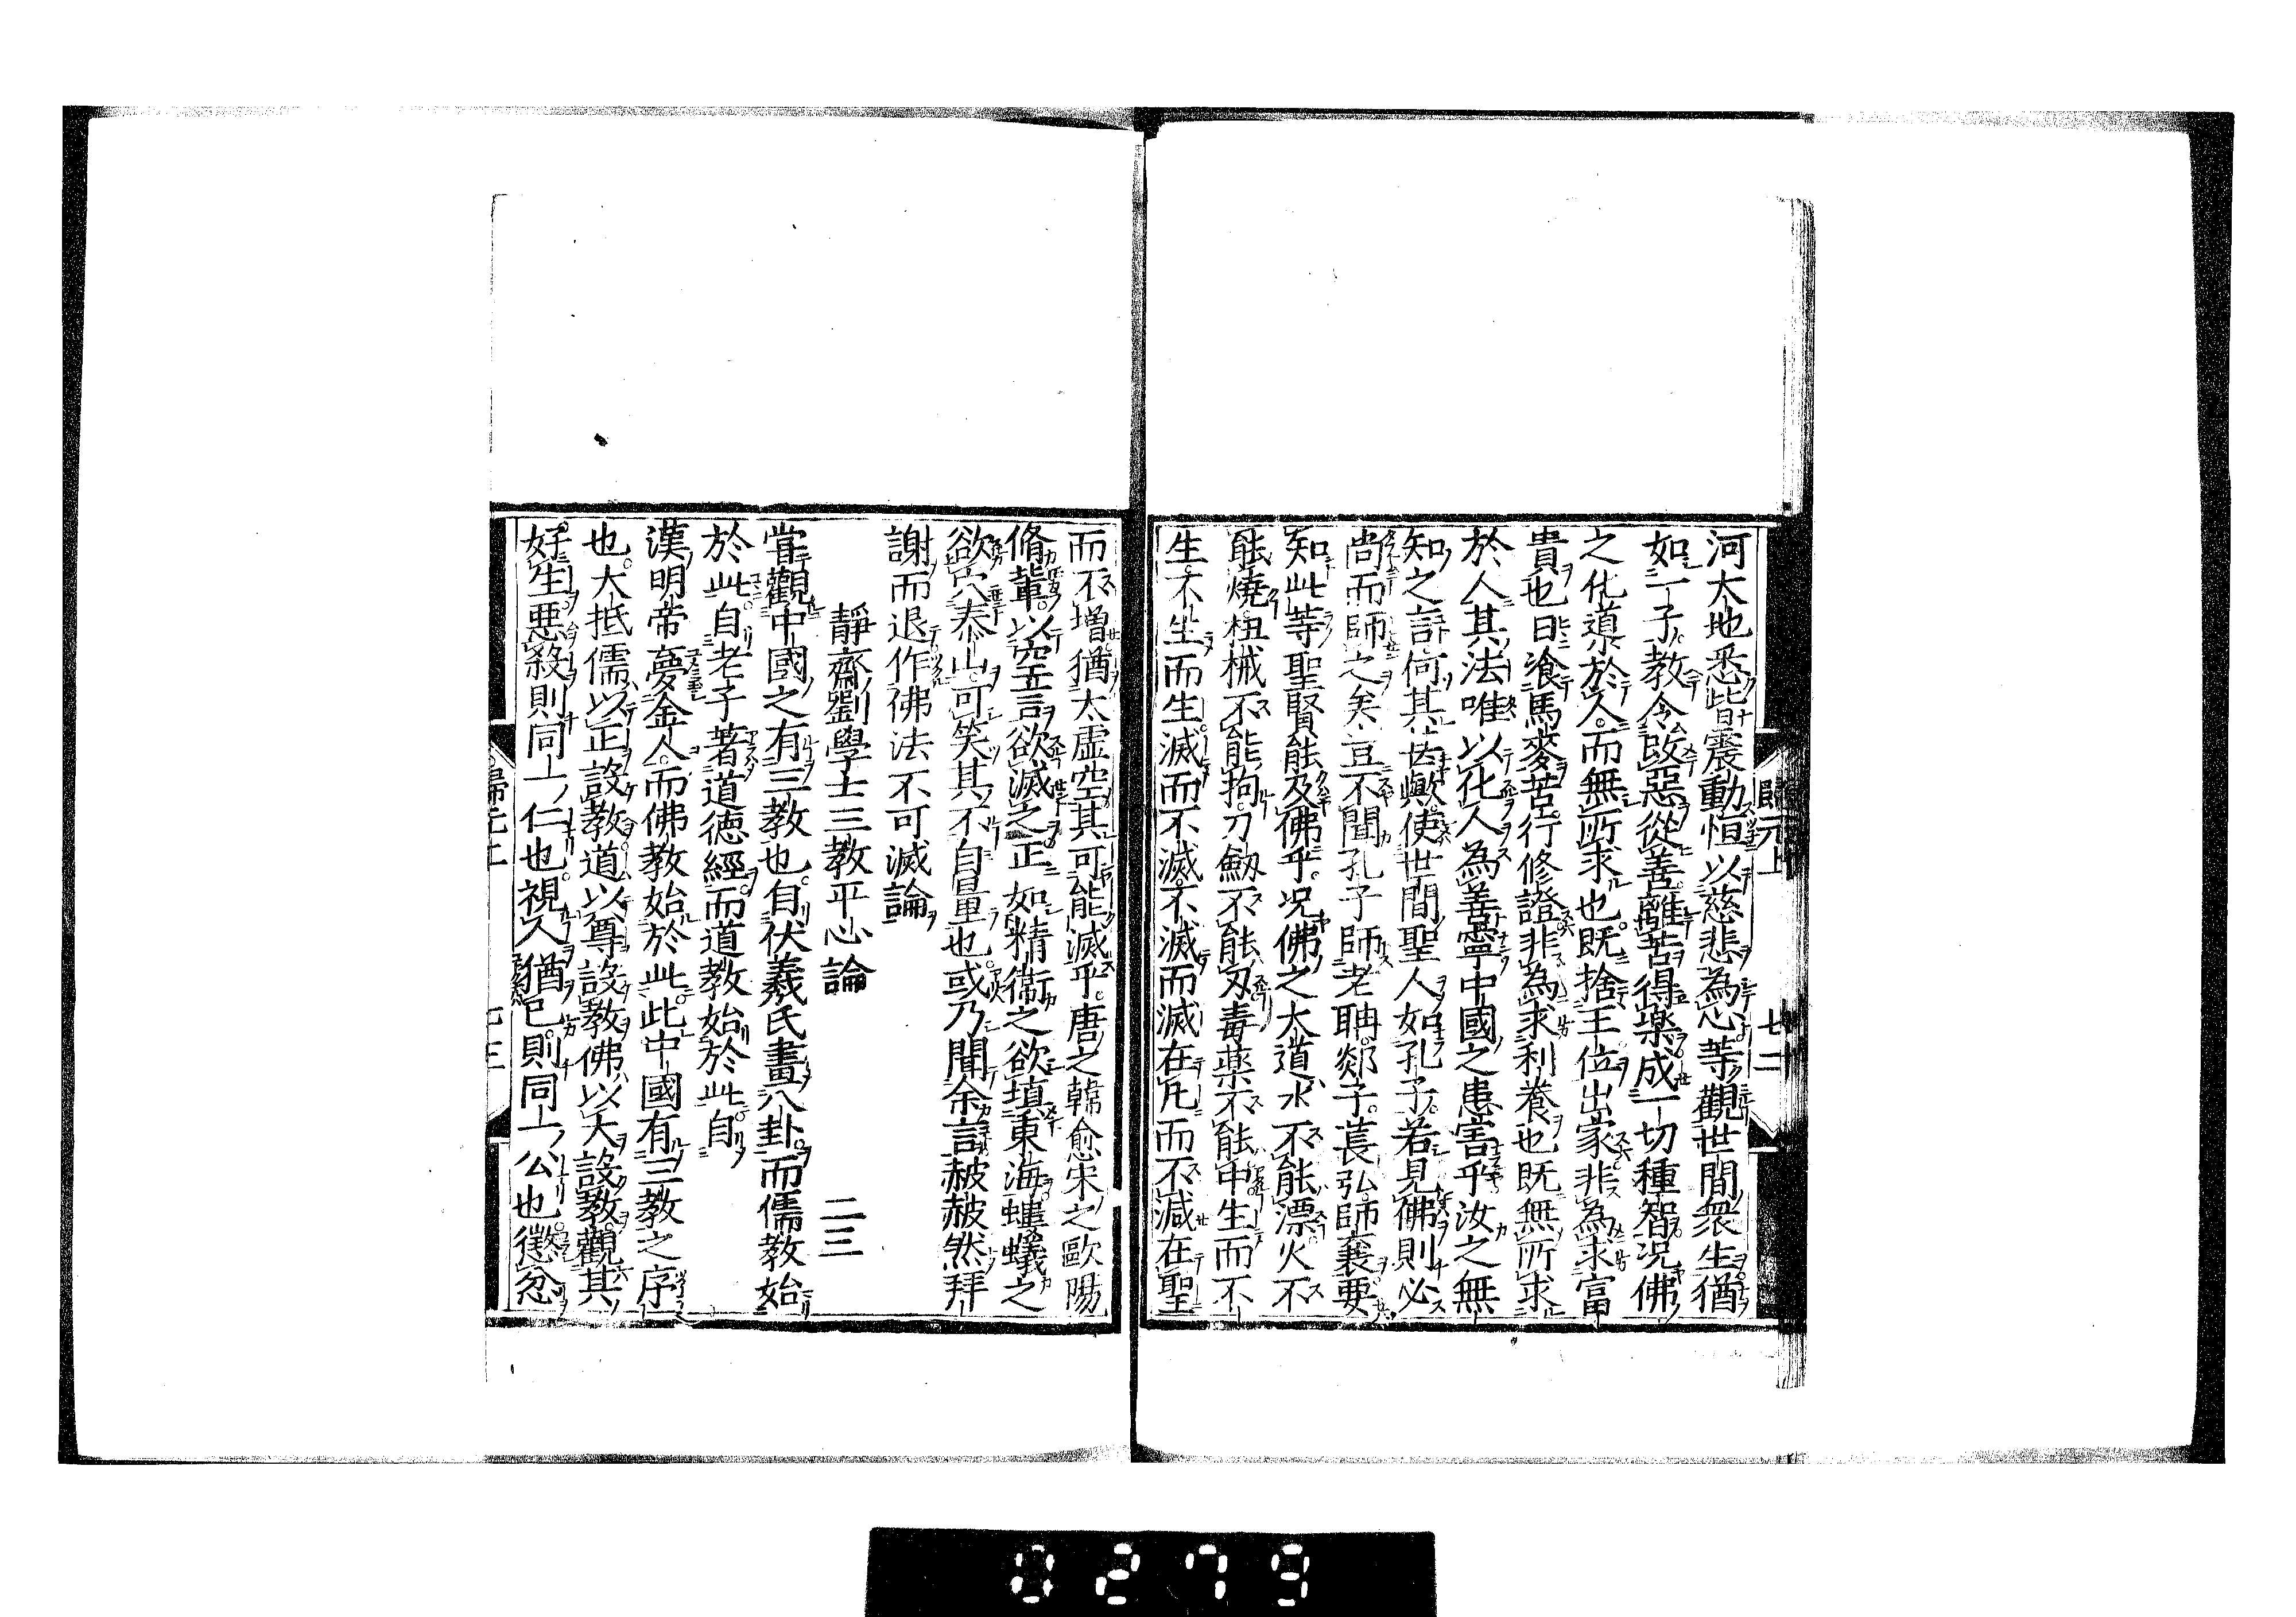 歸元上
七二
河大地悉皆震動恒以慈悲為心等觀世間衆生猶
如一子教令改惡從善離苦得樂成一切種智况佛
之化道於人而無所求也既捨王位出家非為求富
貴也日飡馬麥苦行修證非為求利養也既無所求
於人其法唯以化人為善寧中國之患害乎汝之無
知之言何其甚歟使世間聖人如孔子若見佛則必
尚而師之矣豈不聞孔子師老聃郯子萇弘師襄要
知此等聖賢能及佛乎况佛之大道水不能漂火不
能燒杻械不能拘刀劔不能刃毒藥不能中生而不
生不生而生滅而不滅不滅而滅在凡而不減在聖
而不增猶太虛空其可能滅乎唐之韓愈宋之歐陽
脩輩以空言欲滅之正如精衞之欲填東海螻蟻之
欲穴泰山可笑其不自量也或乃聞余言赧赧然拜
謝而退作佛法不可滅論
靜齋劉學士三教平心論 二三
嘗觀中國之有三教也自伏羲氏畫八卦而儒教始
於此自老子著道德經而道教始於此自
漢明帝夢金人而佛教始於此此中國有三教之序
也大抵儒以正設教道以尊設教佛以大設教觀其
好生惡殺則同一仁也視人猶己則同一公也懲忿
歸元上
七三
0279